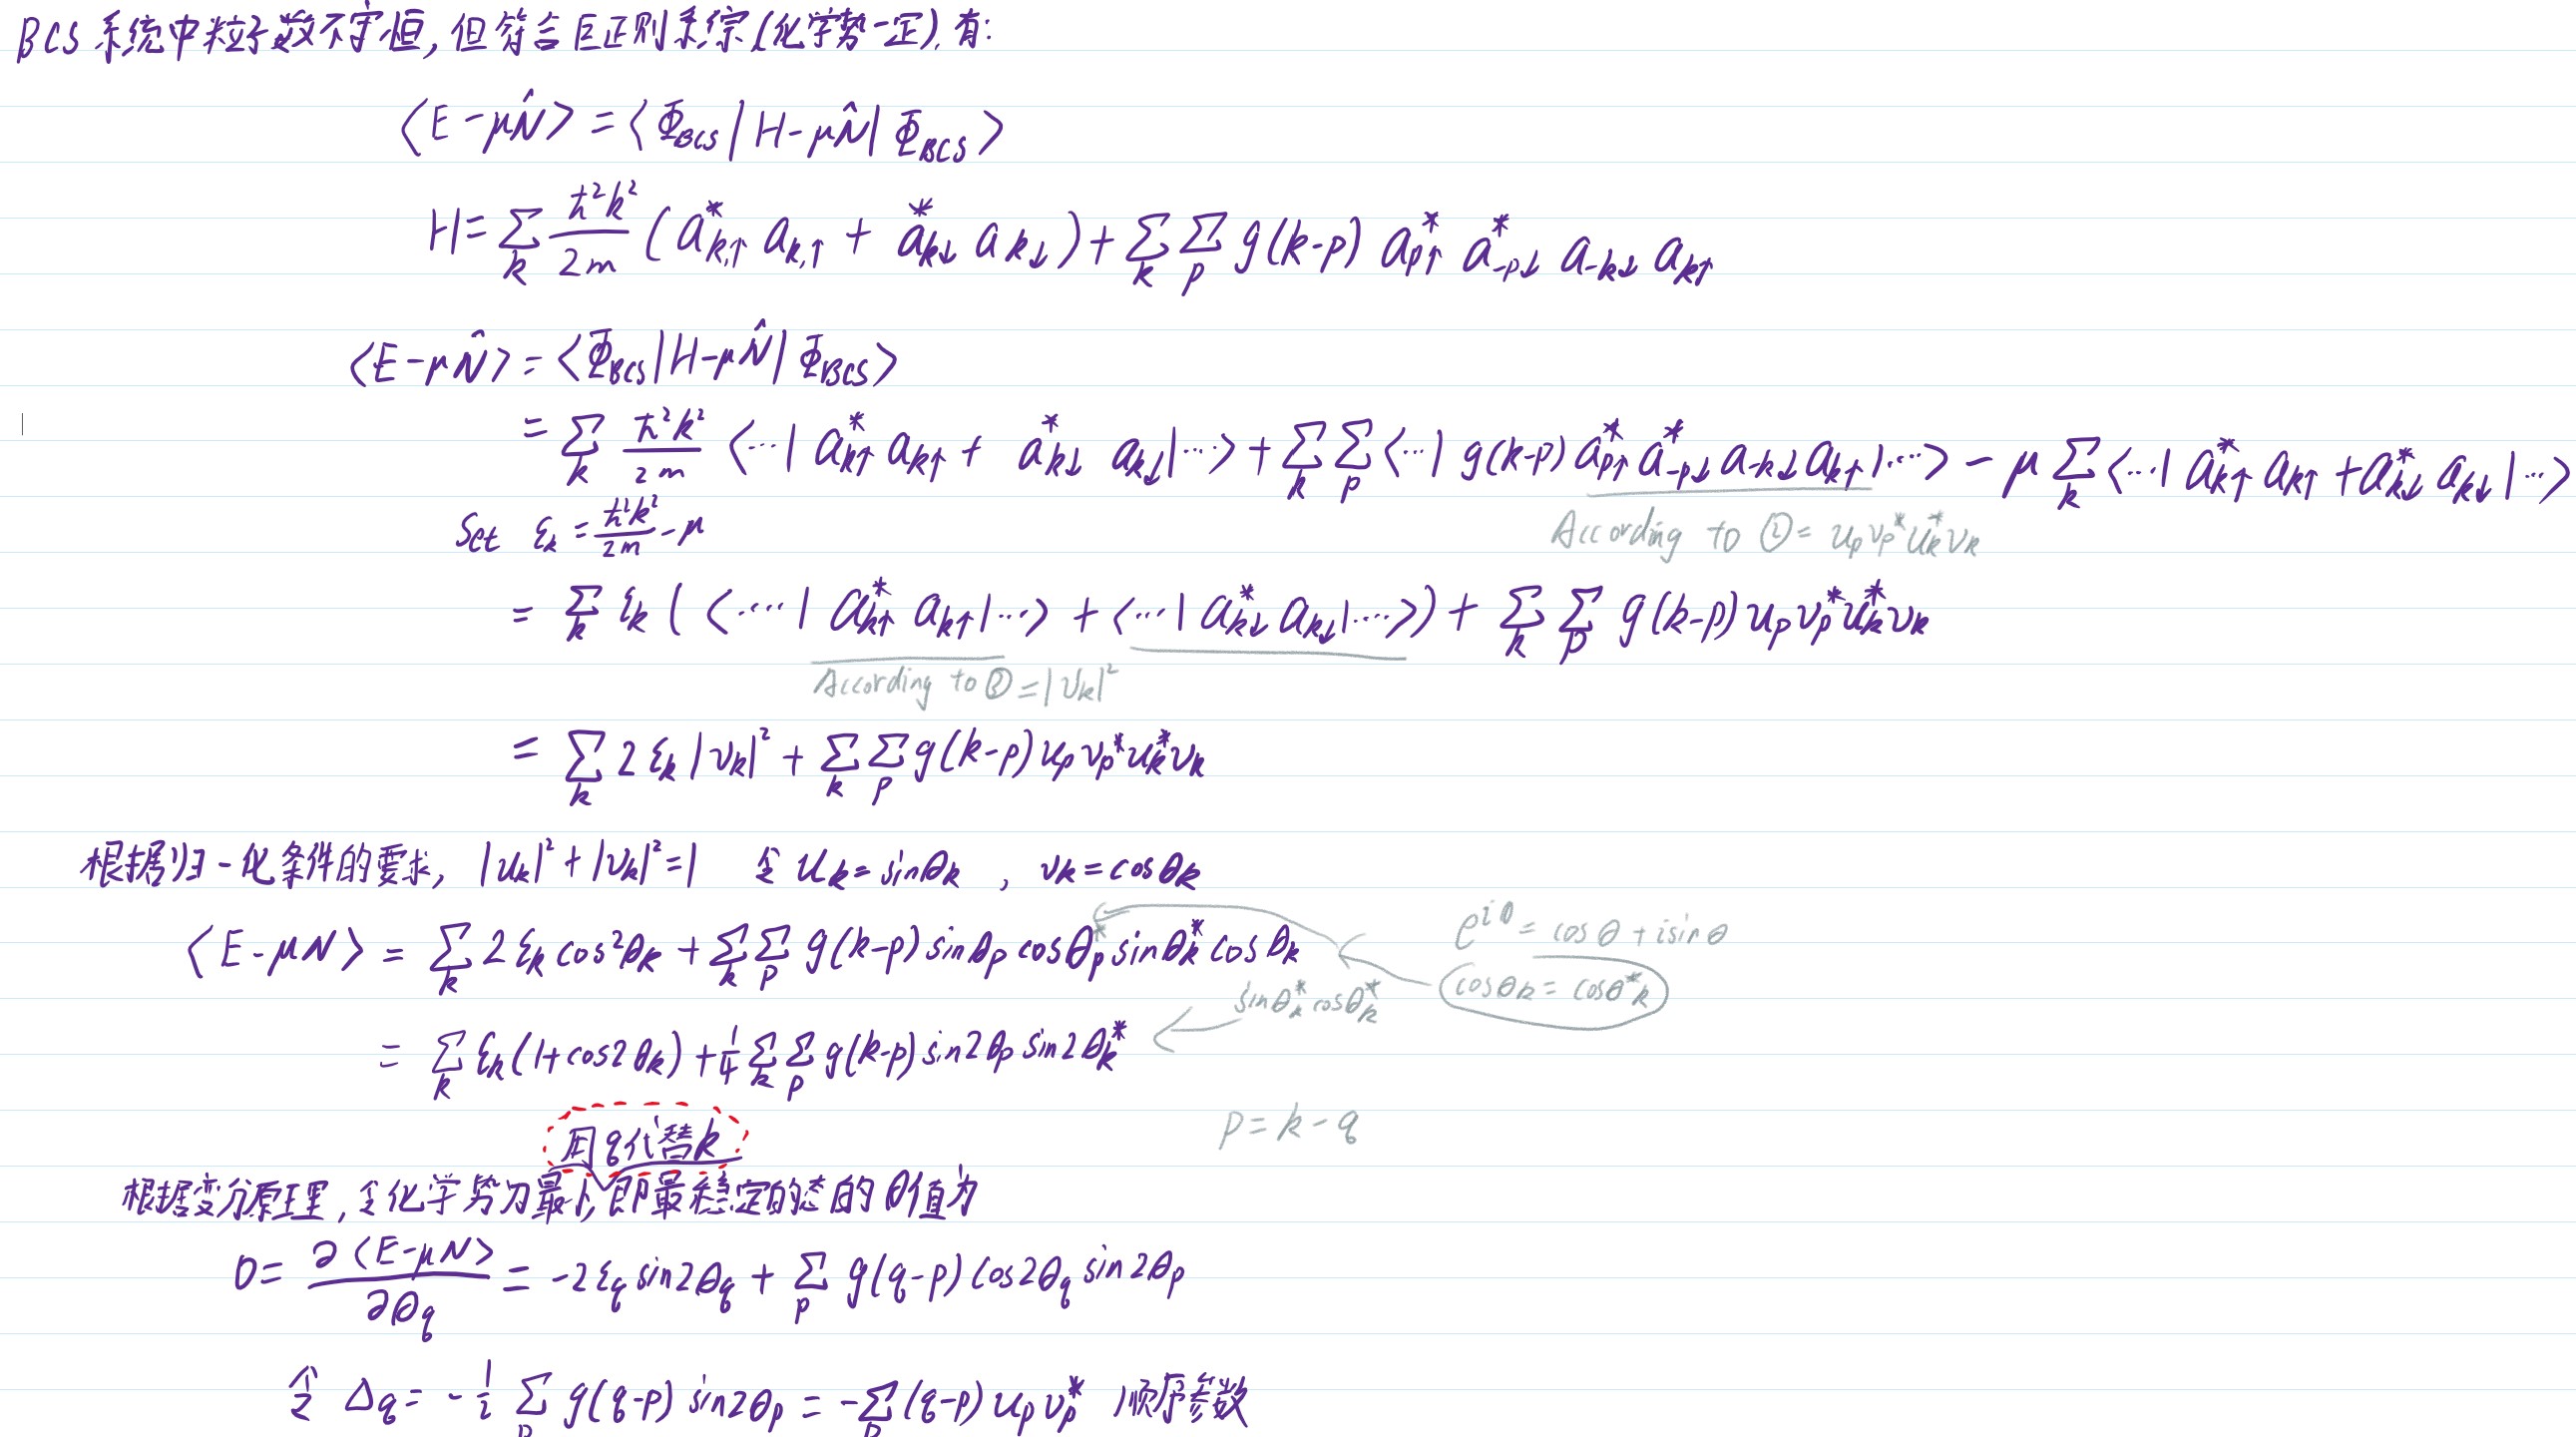 BCS 系统中粒子数不守恒, 但符合巨正则系综(化学势一定), 有:
⟨E - μN̂⟩ = ⟨Φ_BCS | H - μN̂ | Φ_BCS⟩
H = Σ_k ħ²k²/2m (a*_{k,↑} a_{k,↑} + a*_{k↓} a_{k↓}) + Σ_k Σ_p g(k-p) a*_{p↑} a*_{-p↓} a_{-k↓} a_{k↑}
⟨E - μN̂⟩ = ⟨Φ_BCS | H - μN̂ | Φ_BCS⟩
= Σ_k ħ²k²/2m ⟨…| a*_{k↑} a_{k↑} + a*_{k↓} a_{k↓} |…⟩ + Σ_k Σ_p ⟨…| g(k-p) a*_{p↑} a*_{-p↓} a_{-k↓} a_{k↑} |…⟩ - μ Σ_k ⟨…| a*_{k↑} a_{k↑} + a*_{k↓} a_{k↓} |…⟩
Set ξ_k = ħ²k²/2m - μ
According to ① = u_p v_p* u_k* v_k
= Σ_k ξ_k (⟨…| a*_{k↑} a_{k↑} |…⟩ + ⟨…| a*_{k↓} a_{k↓} |…⟩) + Σ_k Σ_p g(k-p) u_p v_p* u_k* v_k
According to ② = |v_k|²
= Σ_k 2ξ_k |v_k|² + Σ_k Σ_p g(k-p) u_p v_p* u_k* v_k
根据归一化条件的要求, |u_k|² + |v_k|² = 1 令 u_k = sinθ_k , v_k = cosθ_k
⟨E - μN⟩ = Σ_k 2ξ_k cos²θ_k + Σ_k Σ_p g(k-p) sinθ_p cosθ_p* sinθ_k* cosθ_k
e^{iθ} = cosθ + i sinθ
cosθ_k = cosθ*_k
sinθ_k* cosθ_k*
= Σ_k ξ_k (1 + cos2θ_k) + 1/4 Σ_k Σ_p g(k-p) sin2θ_p sin2θ_k*
用q代替k
p = k - q
根据变分原理, 令化学势为最小, 即最稳定的态的θ值为
0 = ∂⟨E-μN⟩/∂θ_q = -2ξ_q sin2θ_q + Σ_p g(q-p) cos2θ_q sin2θ_p
令 Δ_q = -1/2 Σ_p g(q-p) sin2θ_p = -Σ_p (q-p) u_p v_p* 顺序参数